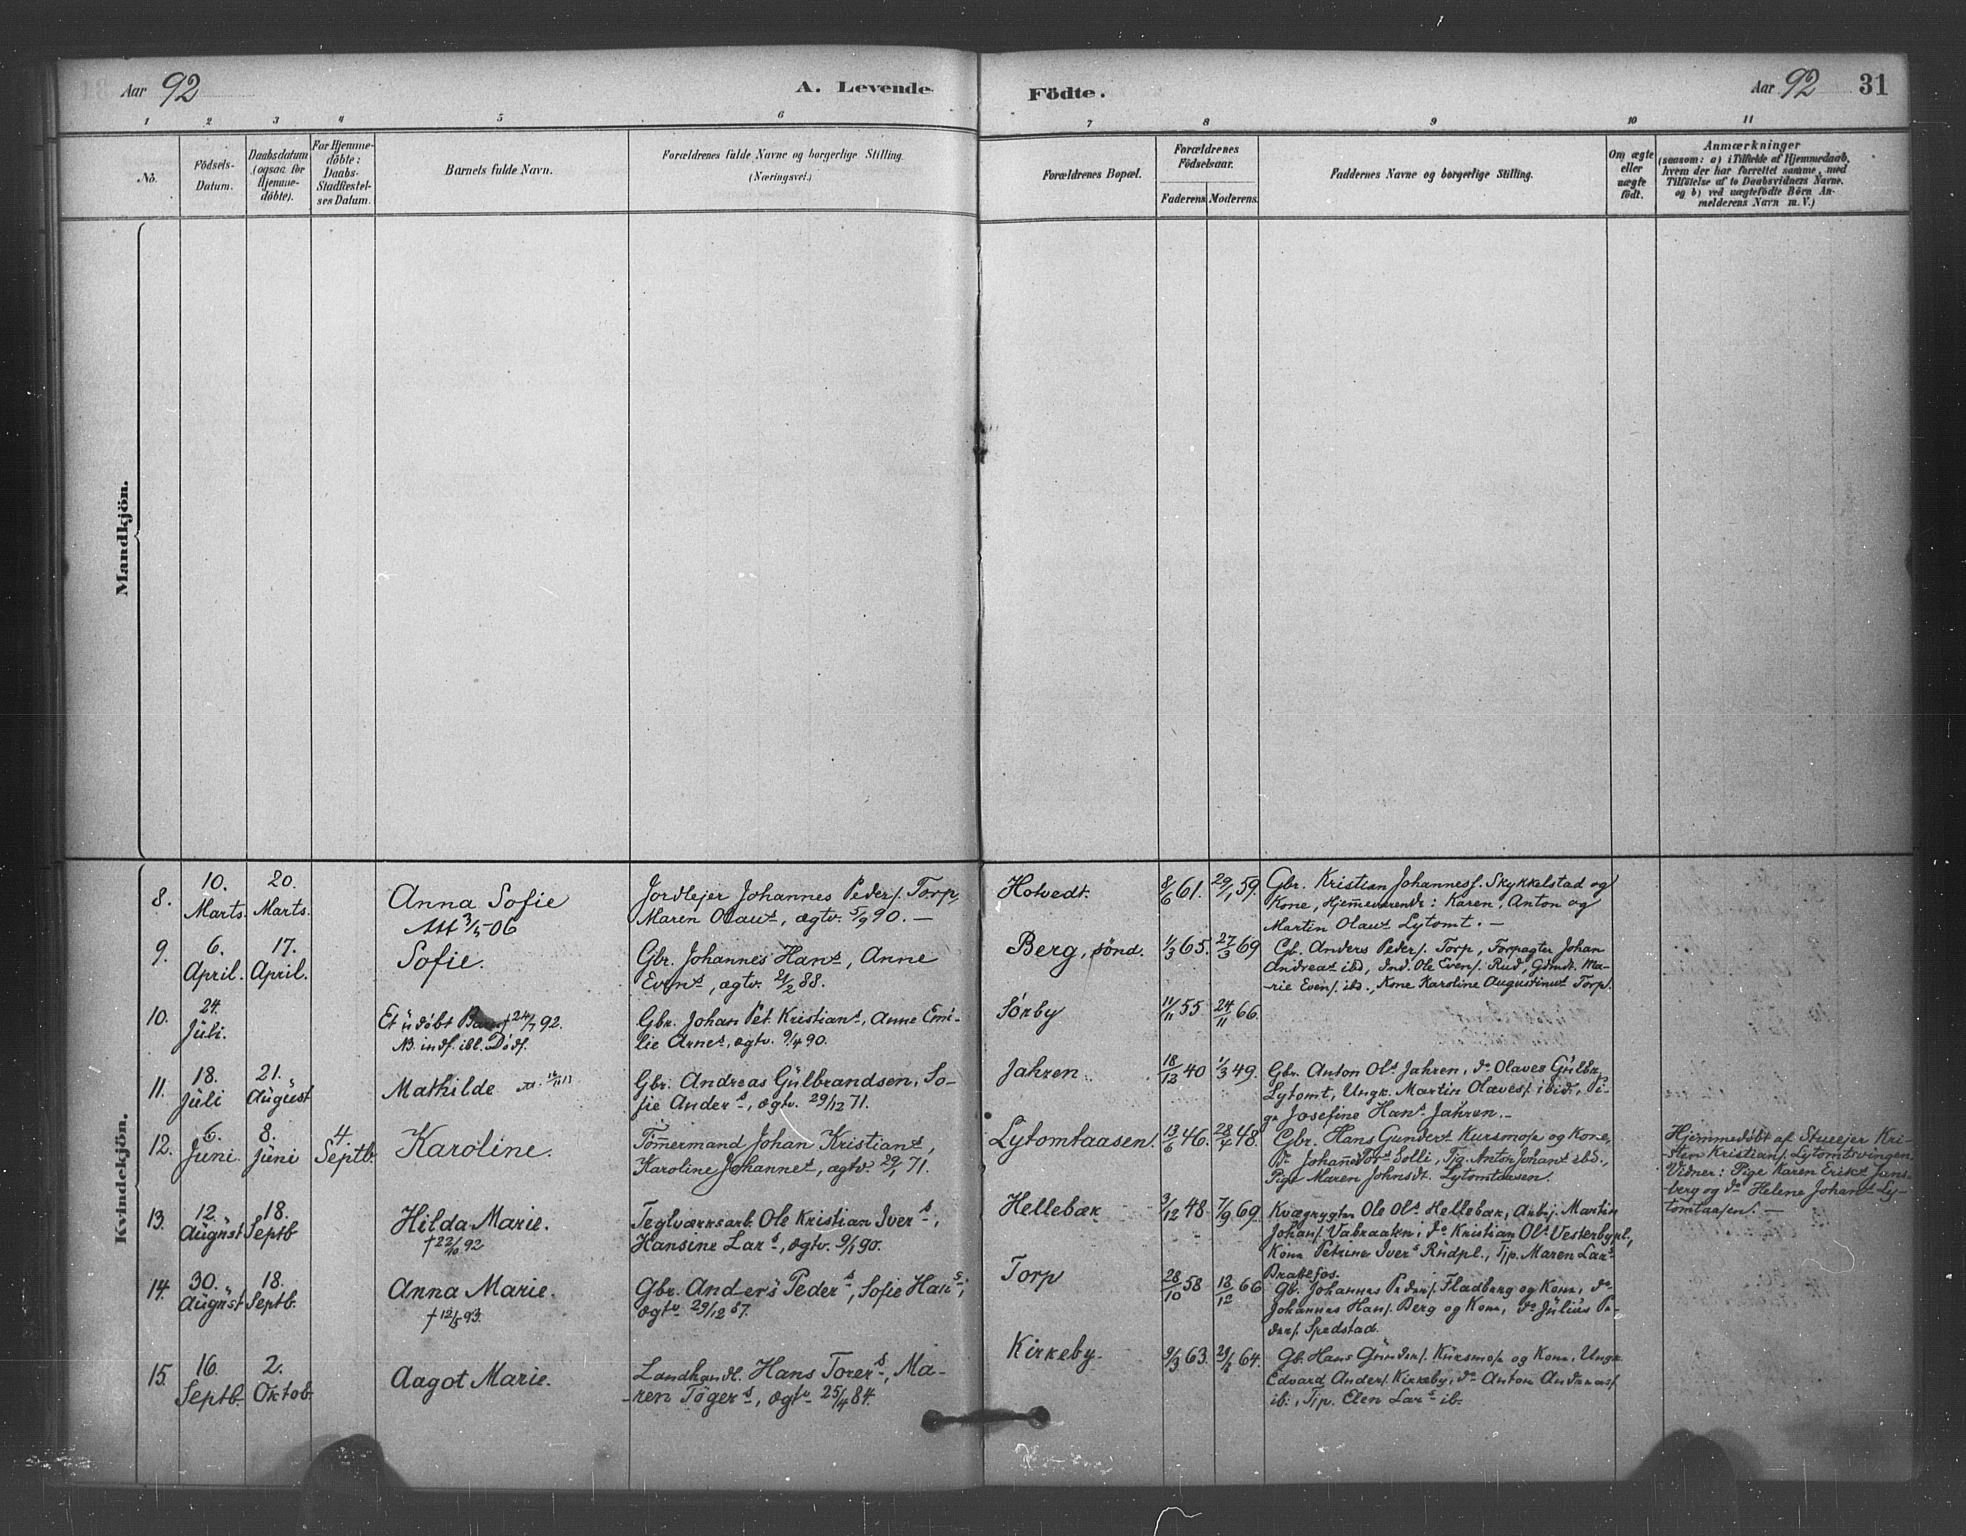 Aar 92
A. Levende
Födte.
Aar 92
31
1 2 3 4 5 6 7 8 9 10 11
No.
Födsels-
Datum.
Daabsdatum
(ogsaa for
Hjemme-
döbte).
For Hjemme-
döbte:
Daabs-
Stadfæstel-
ses Datum.
Barnets fulde Navn.
Forældrenes fulde Navne og borgerlige Stilling.
(Næringsvei.)
Forældrenes Bopæl.
Forældrenes
Födselsaar.
Faderens.
Moderens.
Faddernes Navne og borgerlige Stilling.
Om ægte
eller
uægte
födt.
Anmærkninger
(saasom: a) i Tilfælde af Hjemmedaab,
hvem der har forrettet samme, med
Tilföielse af to Daabsvidners Navne,
og b) ved uægtefödte Börn An-
melderens Navn m. V.)
Mandkjön.
Kvindekjön.
8.
10.
Marts.
20.
Marts.
Anna Sofie
Att 3/5-06
Jordlejer Johannes Peders. Torp,
Maren Olaust, ægtv. 5/9 90. —
Hotvedt.
8/6 61.
29/1 59.
Gbr. Kristian Johannesf. Skykkelstad og
Kone, Hjemmeværende: Karen, Anton og
Martin Olaust Lytomt. —
9.
6.
April.
17.
April.
Sofie.
Gbr. Johannes Hans, Anne
Evens, ægtv. 21/2 88.
Berg, sönd.
1/3 65.
27/3 69
Gb. Anders Peders. Torp, Forpagter Johan
Andreas ibd, Ind. Ole Evens. Rud, Gdmdt. Ma-
rie Evens. ibd., Kone Karoline Augustinust Torp.
10.
24.
Juli.
Et udöbt Barn † 24/7 92.
NB. indf. ibl. Dödf.
Gbr. Johan Pet. Kristians, Anne Emi-
lie Arnes, ægtv. 9/4 90.
Sörby
11/11 55
24/11 66.
11.
18.
Juli
21.
August
Mathilde
Gbr. Andreas Gulbrandsen, So-
fie Anders, ægtv. 29/12 71.
Jahren
18/12 40
1/3 49.
Gbr. Anton Ols Jahren, do Olaves Gulbr.
Lytomt, Ungk. Martin Olaves. ibid, Pi-
ge Josefine Hans Jahren. —
12.
6.
Juni.
8.
Juni
4.
Septb.
Karoline.
Tömmermand Johan Kristianst,
Karoline Johannest, ægtv. 29/1 71.
Lytomtaasen.
13/6 46.
28/4 48.
Gbr. Hans Gunderst Kursmose og Kone,
Do Johannes Tors Solli, Tjg. Anton Johans ibd.,
Pige Maren Johnsdt. Lytomtaasen.
Hjemmedöbt af Stueejer Kri-
sten Kristians. Lytomtsvingen.
Vidner: Pige Karen Erikst Jens-
berg og do Helene Johanst Ly-
tomtaasen. —
13.
12.
August
18.
Septb
Hilda Marie.
† 22/10 92
Teglværksarb. Ole Kristian Ivers,
Hansine Lars, ægtv. 9/1 90.
Hellebæk
3/12 48
7/9 69.
Kvægrygter Ole Ols Hellebæk, Arbj. Martin
Johans. Vabraaten, do Kristian Ols Vesterbypl.,
Kone Petrine Ivers Rudpl., Tjp. Maren Lars
Brattefos.
14.
30.
August
18.
Septb.
Anna Marie.
† 12/5 93.
Gbr. Anders Peders, Sofie Hans,
ægtv 29/12 87.
Torp
28/10 58
18/12 66
Gb. Johannes Peders. Fladberg og Kone, do
Johannes Hans. Berg og Kone, do Julius Pe-
ders. Spedstad.
15.
16.
Septb.
2.
Oktob.
Aagot Marie.
Landhandl. Hans Torers, Ma-
ren Tögers, ægtv 25/4 84.
Kirkeby.
9/3 63.
Gb. Hans Gunders. Kursmose og Kone, Ungk.
Edvard Anders. Kirkeby, do Anton Andreass.
ib., Tjp. Elen Lars ib.